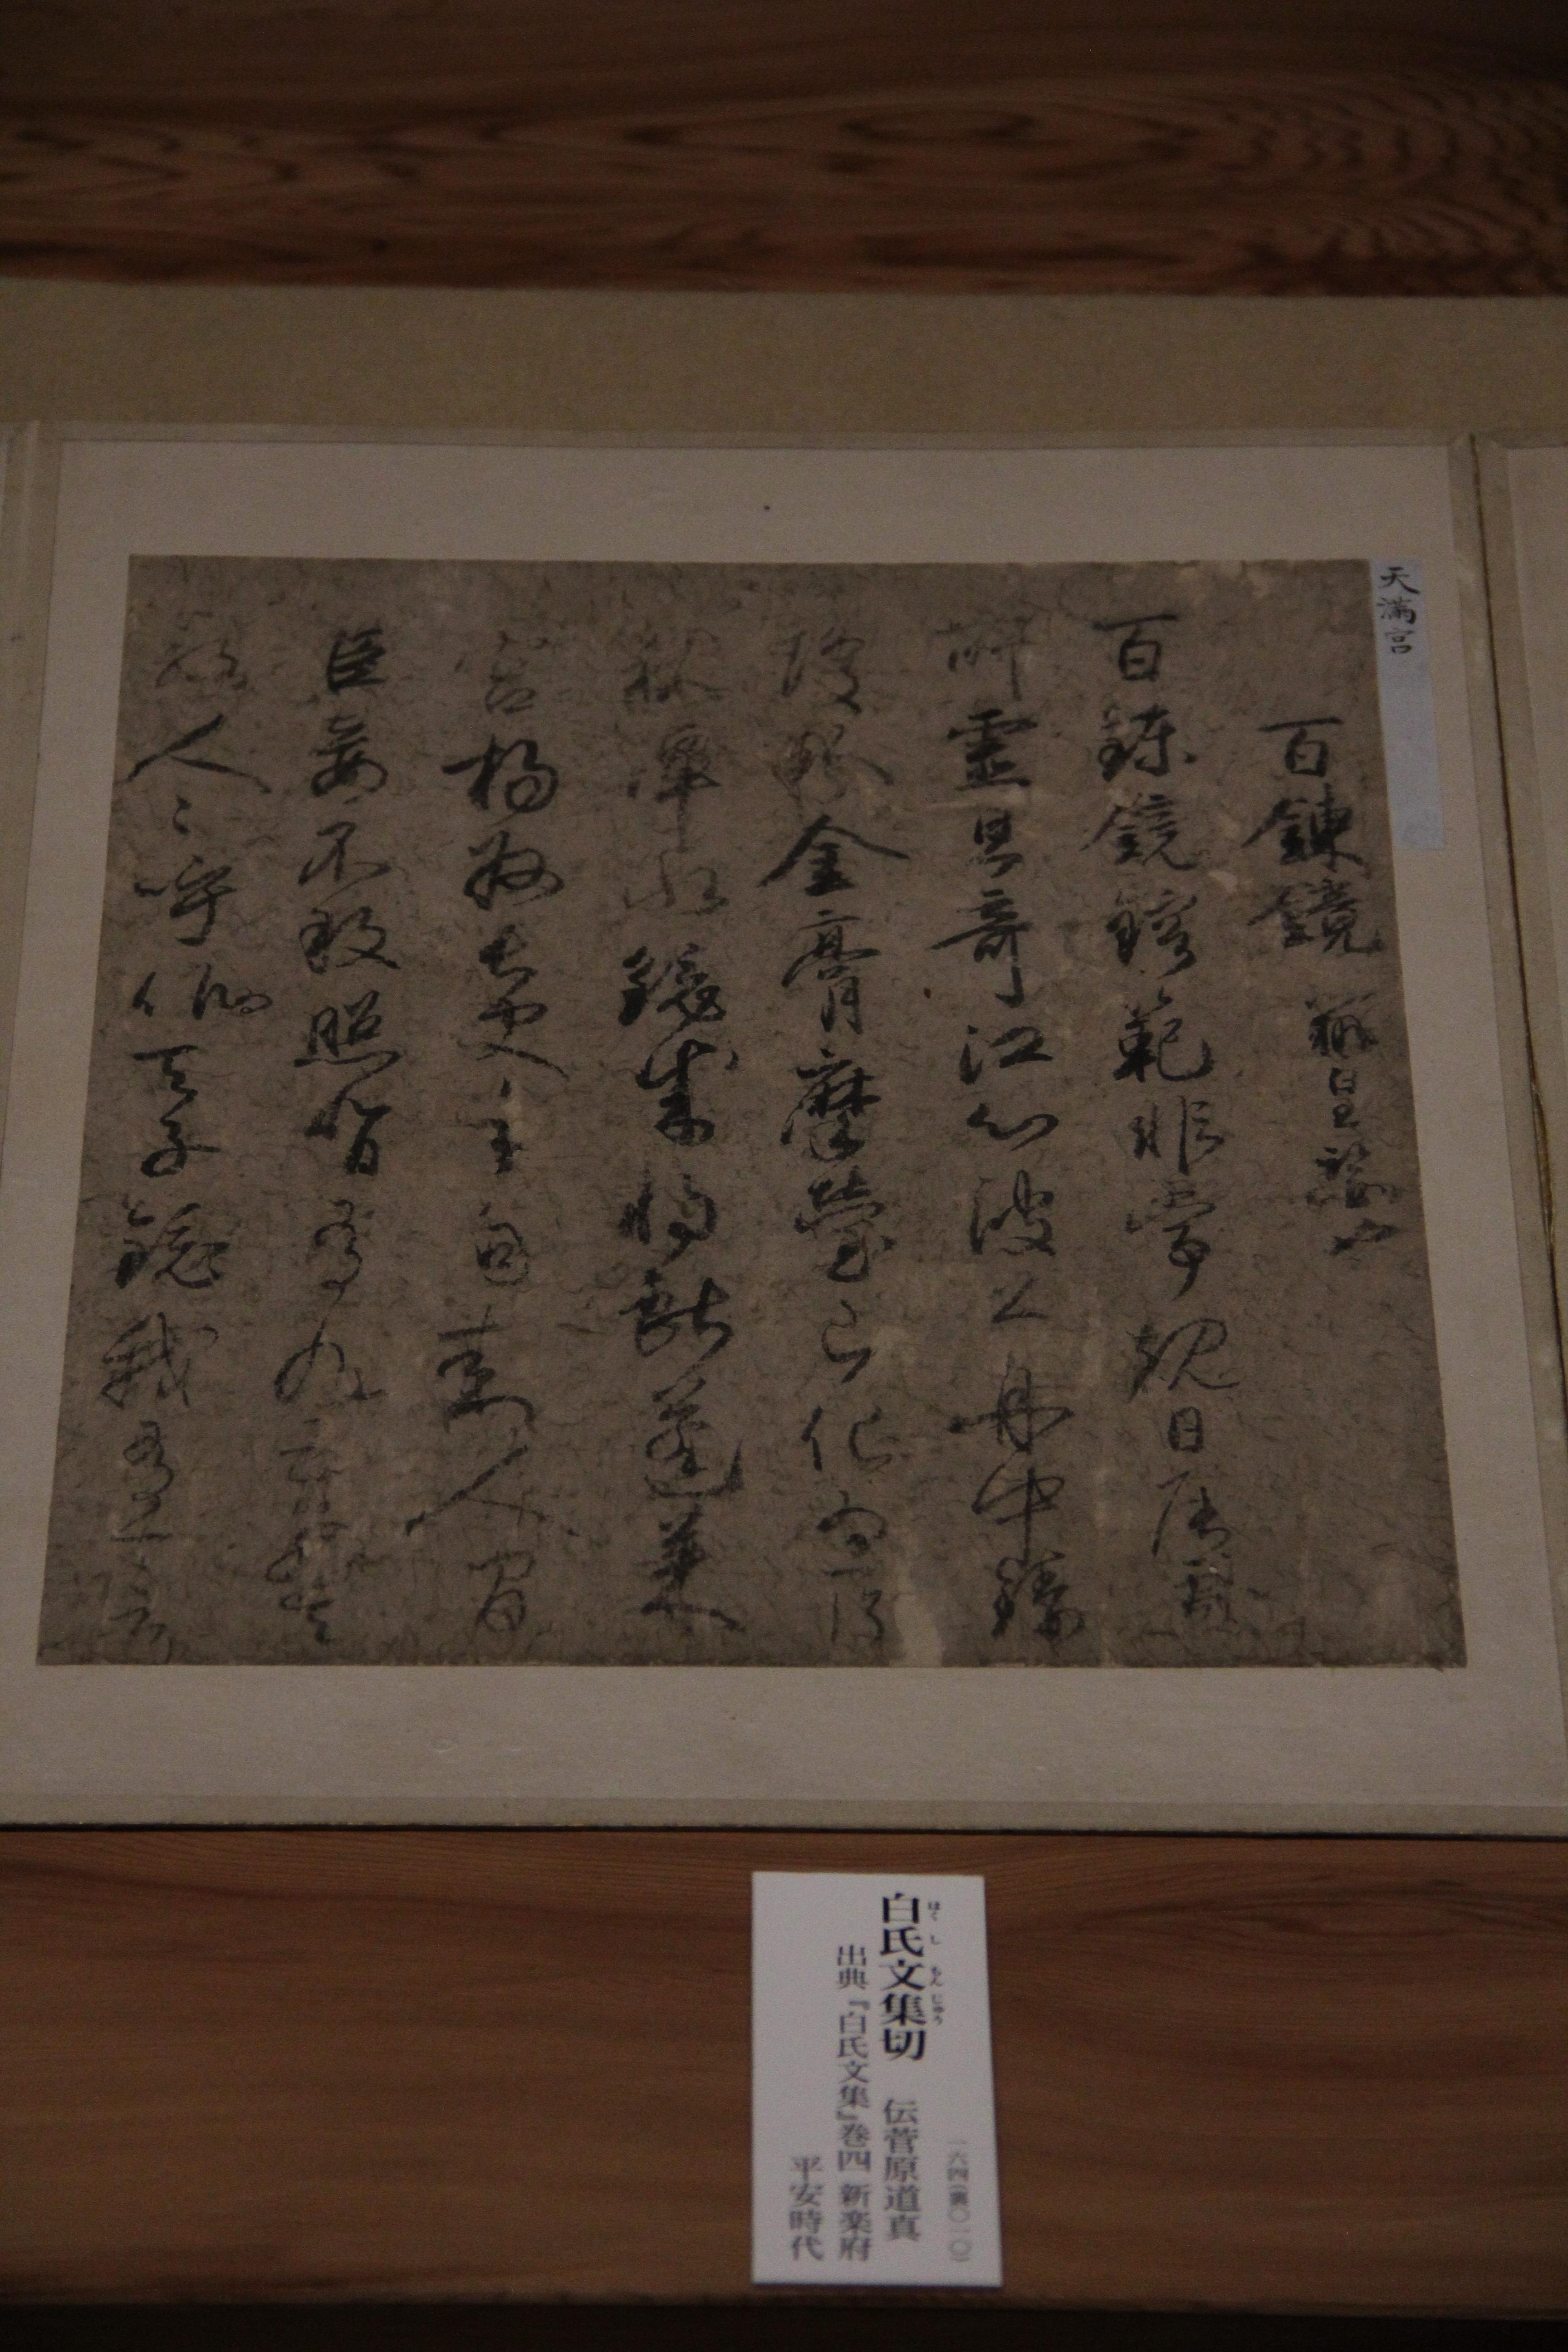 天満宮
百錬鏡 辨皇王鑒也
百錬鏡鎔範非常規日辰處
所靈且奇江心波上舟中鑄
瓊粉金膏磨瑩已化為一片
秋潭水鏡成将獻蓬莱
宮楊州長吏手自封人間
臣妾不敢照背有九五飛天
人々呼為天子鏡我有一言
一六四(裏〇一〇)
白氏文集切 伝菅原道真
はくしもんじゅう
出典『白氏文集』巻四 新楽府
平安時代